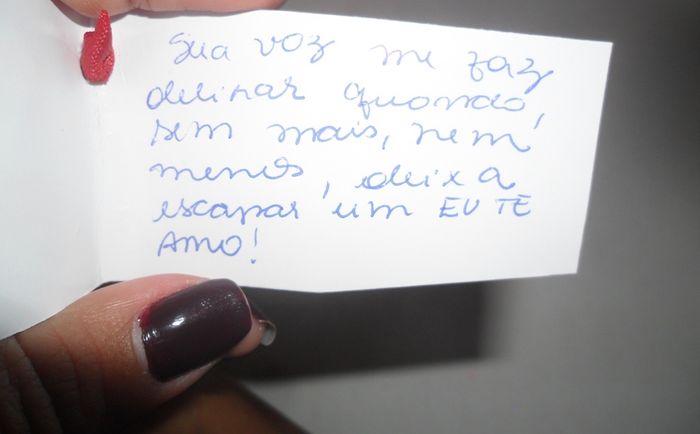 Sua voz me faz
delirar quando,
sem mais, nem
menos, deixa
escapar um EU TE
AMO!